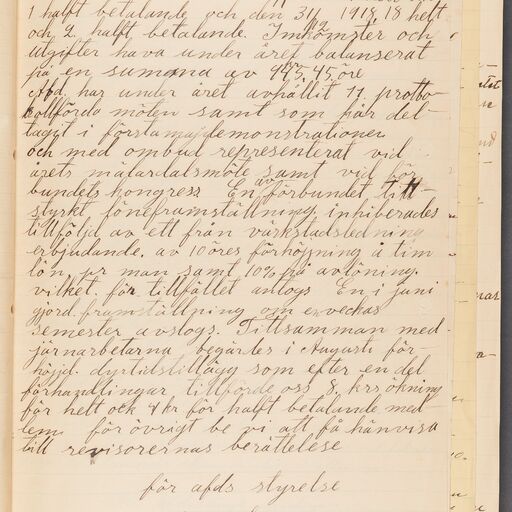 1 halft betalande och den 31/12 1918, 18 helt
och 2 halft betalande. Inkomster och
utgifter hava under året balanserat
på en summa av 445,45 öre
Afd. har under året avhållit 11 protko-
kollförda möten samt som här del-
tagit i förstamajdemonstrationen
och med ombud representerat vid
årets mälardalsmöte samt vid för-
bundets kongress En av förbundet till-
styrkt löneframställning, inhiberades
tillföljd av ett från värkstadsledning
erbjudande. av 10 öres förhöjning å tim
lön, pr man samt 10% på avlöning.
vilket för tillfället antogs En i juni
gjord framställning om en veckas
semester avslogs. Tillsamman med
järnarbetarna begärtes i Augusti för-
höjd dyrtidstillägg som efter en del
förhandlingar tillförde oss 8 krs ökning
för helt och 4 kr för halft betalande med-
lem för övrigt be vi att få hänvisa
till revisorernas berättelese
för afds styrelse